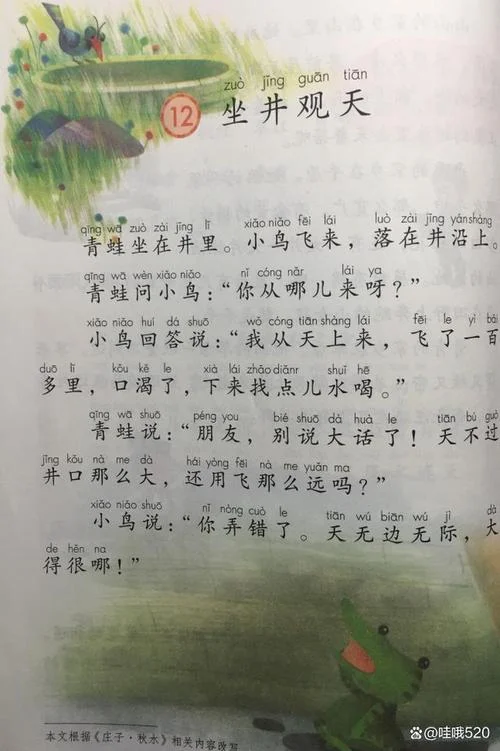 zuò jǐng guān tiān
12 坐井观天
qīng wā zuò zài jǐng lǐ xiǎo niǎo fēi lái luò zài jǐng yán shàng
青蛙坐在井里。小鸟飞来，落在井沿上。
qīng wā wèn xiǎo niǎo nǐ cóng nǎr lái ya
青蛙问小鸟：“你从哪儿来呀？”
xiǎo niǎo huí dá shuō wǒ cóng tiān shàng lái fēi le yì bǎi
小鸟回答说：“我从天上来，飞了一百
duō lǐ kǒu kě le xià lái zhǎo diǎnr shuǐ hē
多里，口渴了，下来找点儿水喝。”
qīng wā shuō péng you bié shuō dà huà le tiān bú guò
青蛙说：“朋友，别说大话了！天不过
jǐng kǒu nà me dà hái yòng fēi nà me yuǎn ma
井口那么大，还用飞那么远吗？”
xiǎo niǎo shuō nǐ nòng cuò le tiān wú biān wú jì dà
小鸟说：“你弄错了。天无边无际，大
de hěn na
得很哪！”
本文根据《庄子·秋水》相关内容改写
@哇哦520